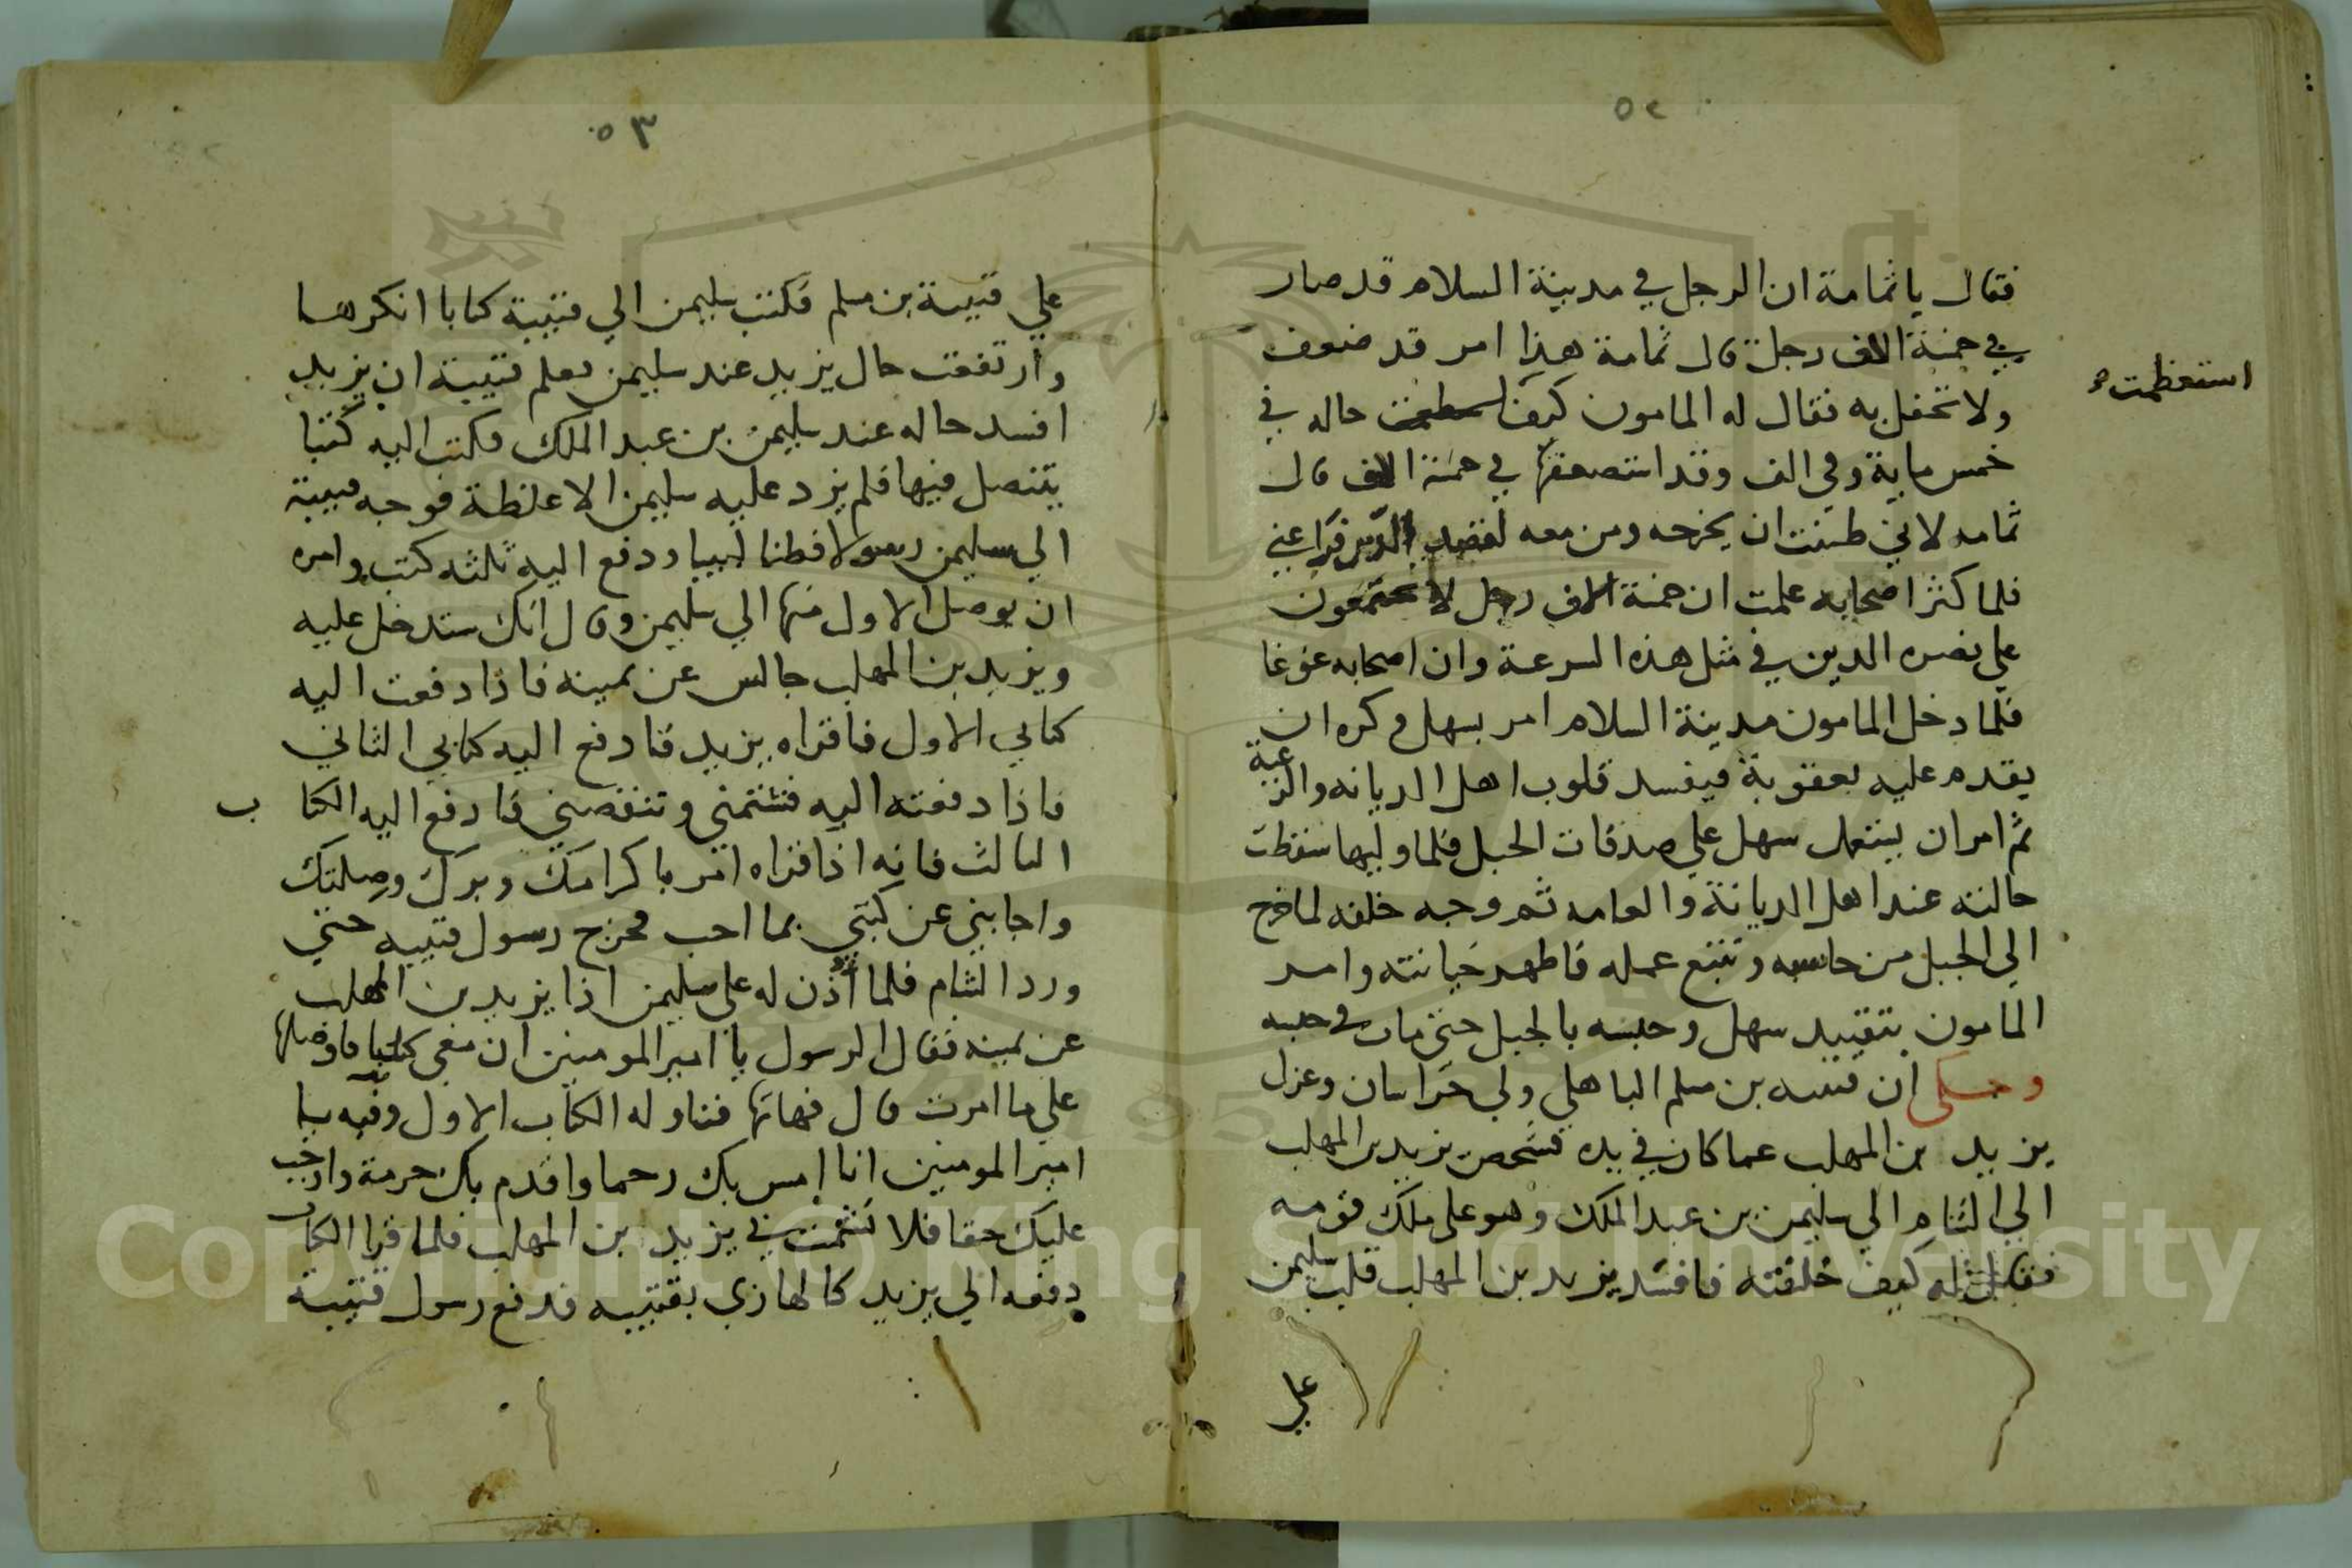 ٥٢
فقال يا ثمامة ان الرجل في مدينة السلام قد صار
في خمسة الاف رجل قال ثمامة هذا امر قد ضعف
ولا تحفل به فقال له المامون كيف استعظمت حاله في
استعظمت
خمس ماية وفي الف وقد استصعفتها في خمسة الاف قال
ثمامه لاني ظننت ان يخرجه ومن معه لقصد الدين
فلما كثر اصحابه علمت ان خمسة الاف رجل لا يجتمعون
علي نصره الدين في مثل هذه السرعة وان اصحابه غوغا
فلما دخل المامون مدينة السلام امر بسهل وكره ان
يقدم عليه بعقوبة فيفسد قلوب اهل الديانه والرعية
ثم امر ان يستعمل سهل علي صدقات الجبل فلما وليها سقطت
حالته عند اهل الديانة والعامه ثم وجه خلفه لما خرج
الي الجبل من حاسبه وتتبع عمله فاظهر خيانته وامر
المامون بتقييد سهل وحبسه بالجبل حتى مات في حبسه
وحكى ان قتيبه بن مسلم الباهلي ولي خراسان وعزل
يزيد بن المهلب عما كان في يده فشخص يزيد بن المهلب
الي الشام الي سليمن بن عبد الملك وهو على ملك قومه
فقال له كيف خلفته فافسد يزيد بن المهلب قلب سليمن
علي
٥٣
علي قتيبة بن مسلم فكتب سليمن الي قتيبة كتابا انكرها
وارتفعت حال يزيد عند سليمن فعلم قتيبة ان يزيد
افسد حاله عند سليمن بن عبد الملك فكتب اليه كتبا
يتنصل فيها فلم يزد عليه سليمن الا غلظة فوجه قتيبة
الي سليمن رسولا فطنا لبيبا ودفع اليه ثلثه كتب وامره
ان يوصل الاول منها الي سليمن وقال انك ستدخل عليه
ويزيد بن المهلب جالس عن يمينه فاذا دفعت اليه
كتابي الاول فاقراه يزيد فادفع اليه كتابي الثاني
فاذا دفعته اليه فشتمني وتنقصني فادفع اليه الكتاب
الثالث فانه اذا قراه امر باكرامك وبرك وصلتك
واجابني عن كتبي بما احب فخرج رسول قتيبه حتي
ورد الشام فلما أذن له علي سليمن اذا يزيد بن المهلب
عن يمينه فقال الرسول يا امير المومنين ان معي كتبا فاوصلها
علي ما امرت قال فهاتها فناوله الكتاب الاول وفيه يا
امير المومنين انا امس بك رحما واقدم بك حرمة واوجب
عليك حقا فلا تشمت بي يزيد بن المهلب فلما قرا الكتاب
دفعه الي يزيد كالهازي بقتيبه فدفع رسول قتيبة
Copyright © King Saud University